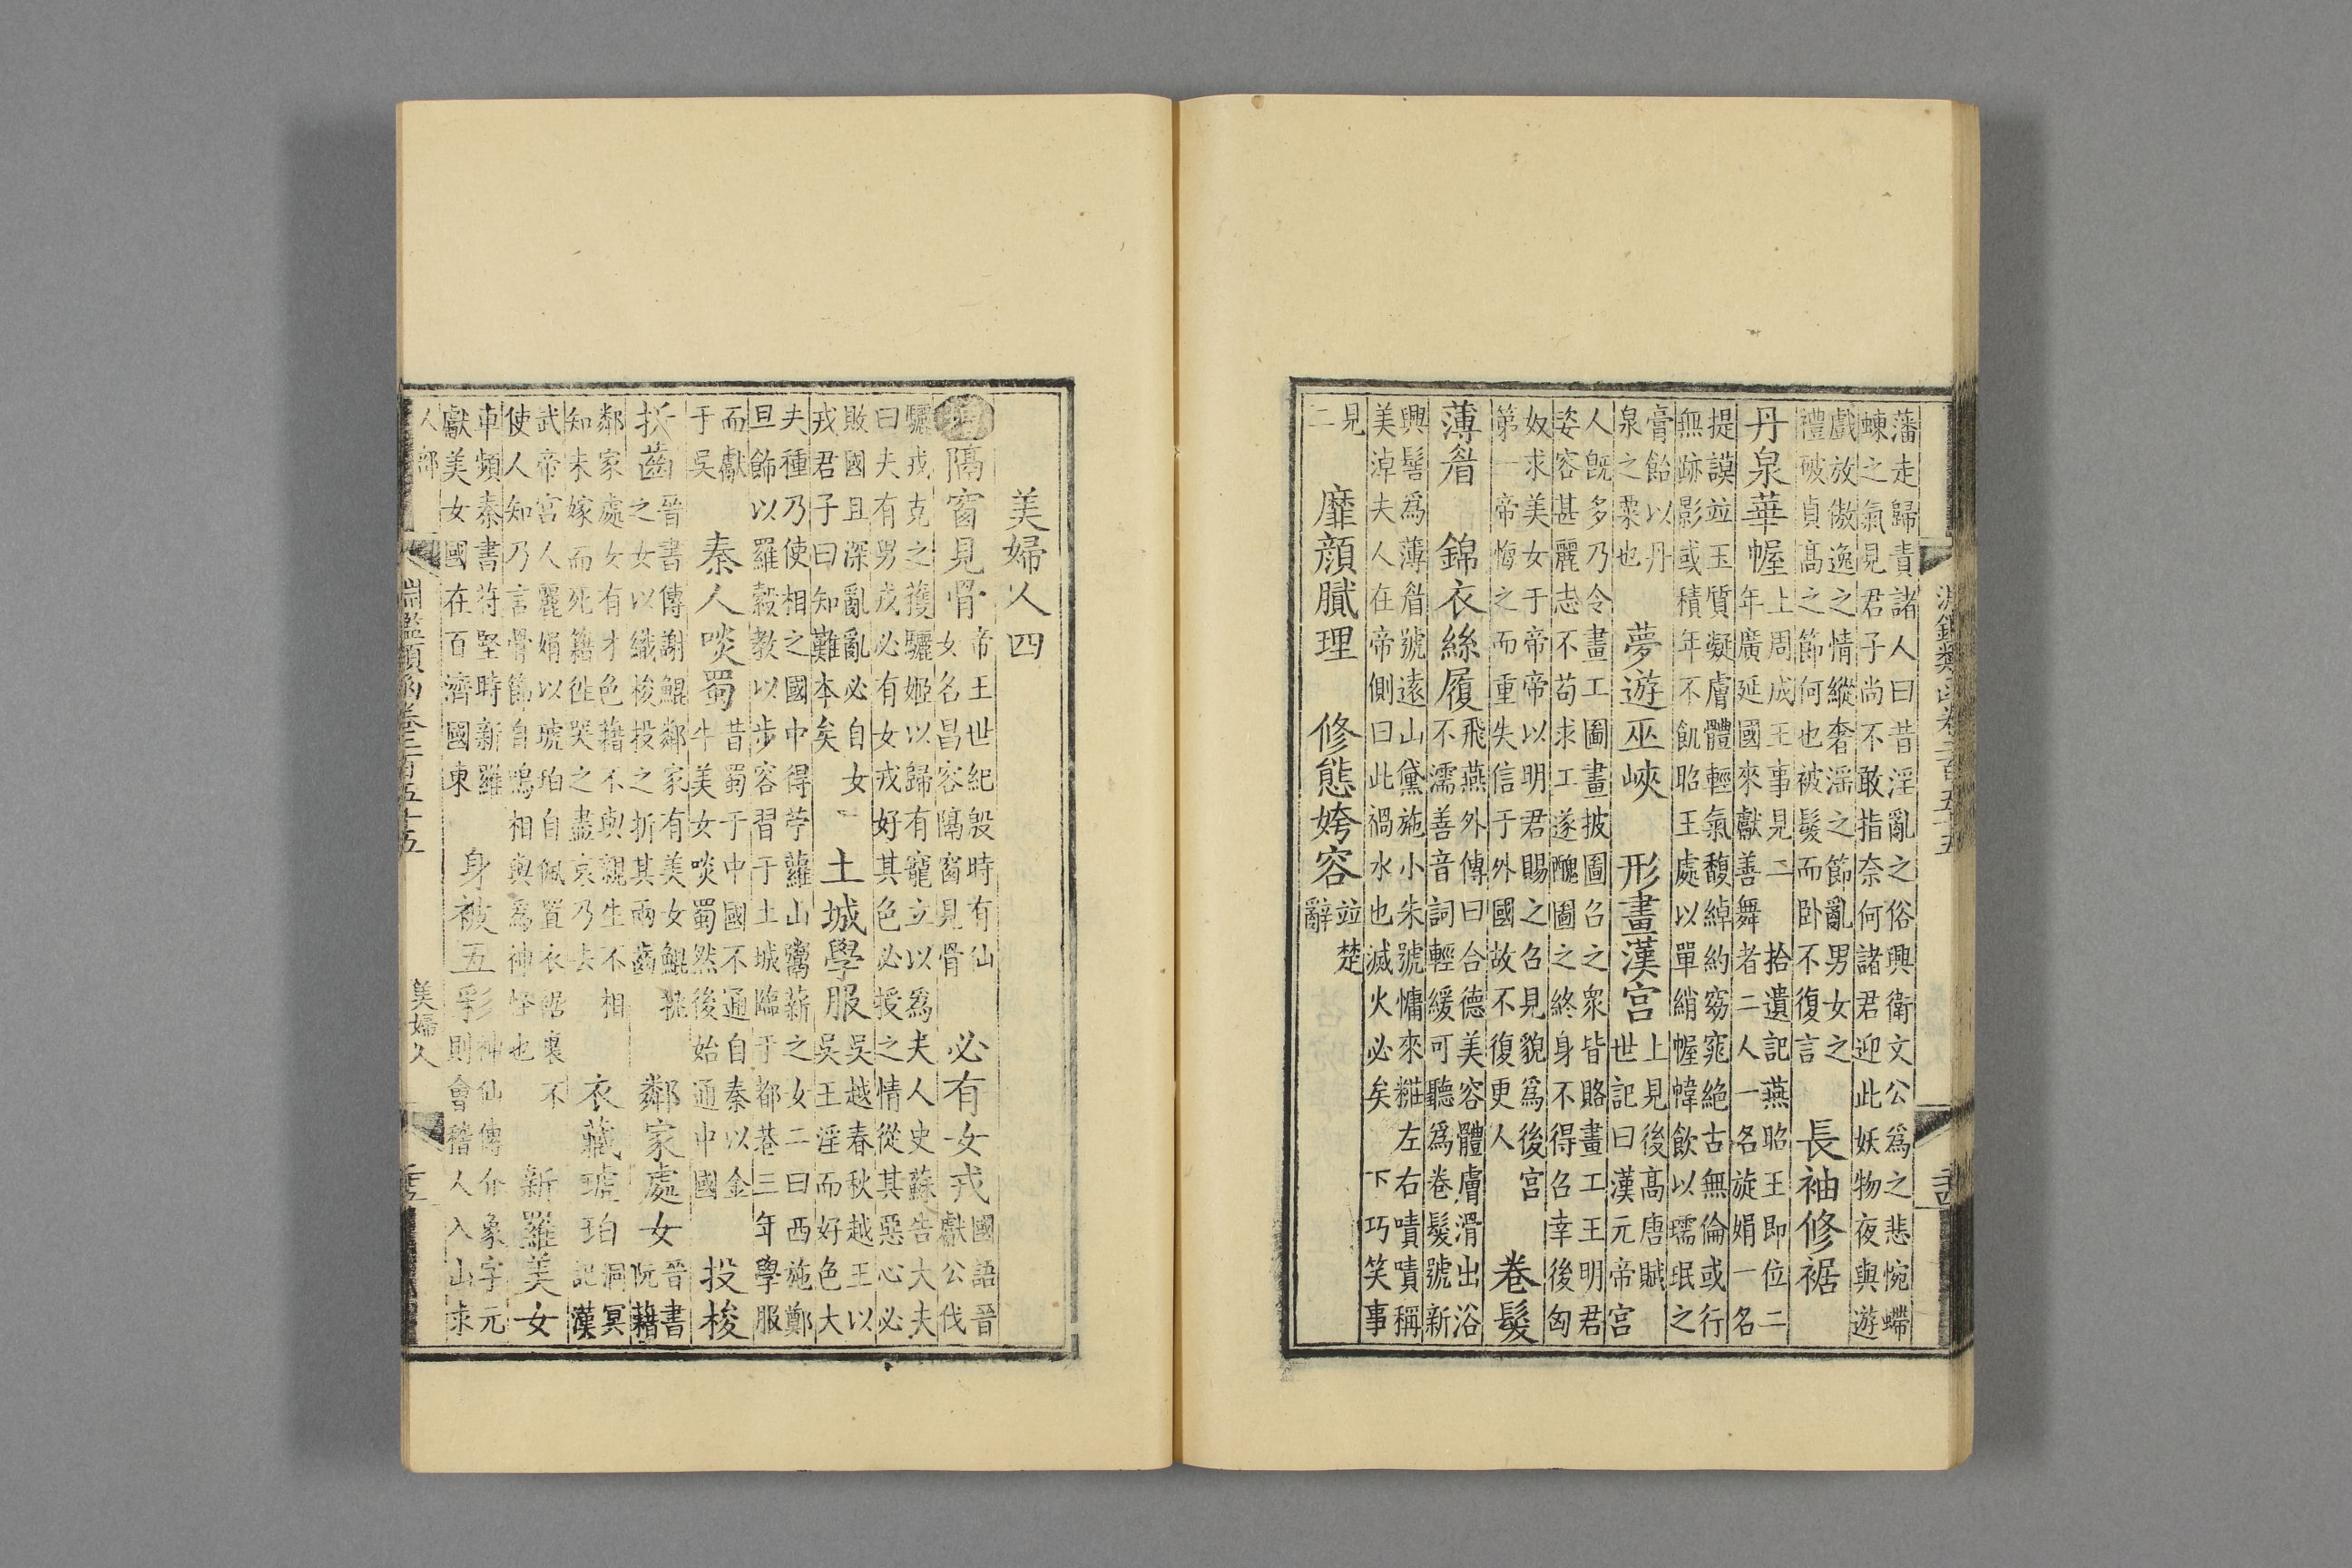 淵鑑類函卷三百五十五
藩走歸責諸人曰昔淫亂之俗興衛文公爲之悲惋蝀
蝀之氣見君子尚不敢指奈何諸君迎此妖物夜與遊
戲放傲逸之情縱奢淫之節亂男女之
禮破貞高之節何也被髮而卧不復言
長袖修裾
丹泉華幄
上周成王事見二 拾遺記燕昭王即位二
年廣延國來獻善舞者二人一名旋娟一名
提謨竝玉質凝膚體輕氣馥綽約窈窕絕古無倫或行
無跡影或積年不飢昭王處以單綃幄幃飲以瓀珉之
膏飴以丹
泉之粟也
夢遊巫峽 形畫漢宮
上見後高唐賦
世記曰漢元帝宮
人旣多乃令畫工圖畫披圖召之衆皆賂畫工王明君
姿容甚麗志不苟求工遂醜圖之終身不得召幸後匈
奴求美女于帝帝以明君賜之召見貌爲後宮
第一帝悔之而重失信于外國故不復更人
卷髮
薄眉 錦衣絲履
飛燕外傳曰合德美容體膚滑出浴
不濡善音詞輕緩可聽爲卷髮號新
興髻爲薄眉號遠山黛施小朱號慵來粧左右嘖嘖稱
美淖夫人在帝側曰此禍水也滅火必矣 下巧笑事
見
二
靡顏膩理 修態姱容
竝楚
辭
美婦人四
隔窗見骨
帝王世紀殷時有仙
女名昌容隔窗見骨
必有女戎
國語晉
獻公伐
驪戎克之獲驪姬以歸有寵立以爲夫人史蘇告大夫
曰夫有男戎必有女戎好其色必授之情從其惡心必
敗國且深亂亂必自女
戎君子曰知難本矣
土城學服
吳越春秋越王以
吳王淫而好色大
夫種乃使相之國中得苧蘿山鬻薪之女二曰西施鄭
旦飾以羅縠教以步容習于土城臨于都巷三年學服
而獻
于吳
秦人啖蜀
昔蜀于中國不通自秦以金
牛美女啖蜀然後始通中國
投梭
折齒
晉書傳謝鯤鄰家有美女鯤挑
之女以織梭投之折其兩齒
鄰家處女
晉書
阮籍
鄰家處女有才色藉不與親生不相
知未嫁而死籍徃哭之盡哀乃去
衣藏琥珀
洞冥
記漢
武帝宮人麗娟以琥珀自佩置衣裾裏不
使人知乃言骨節自鳴相與爲神怪也
新羅美女
車頻秦書苻堅時新羅
獻美女國在百濟國東
身被五彩
神仙傳介象字元
則會稽人入山求
人部
淵鑑類函卷三百五十五
美婦人